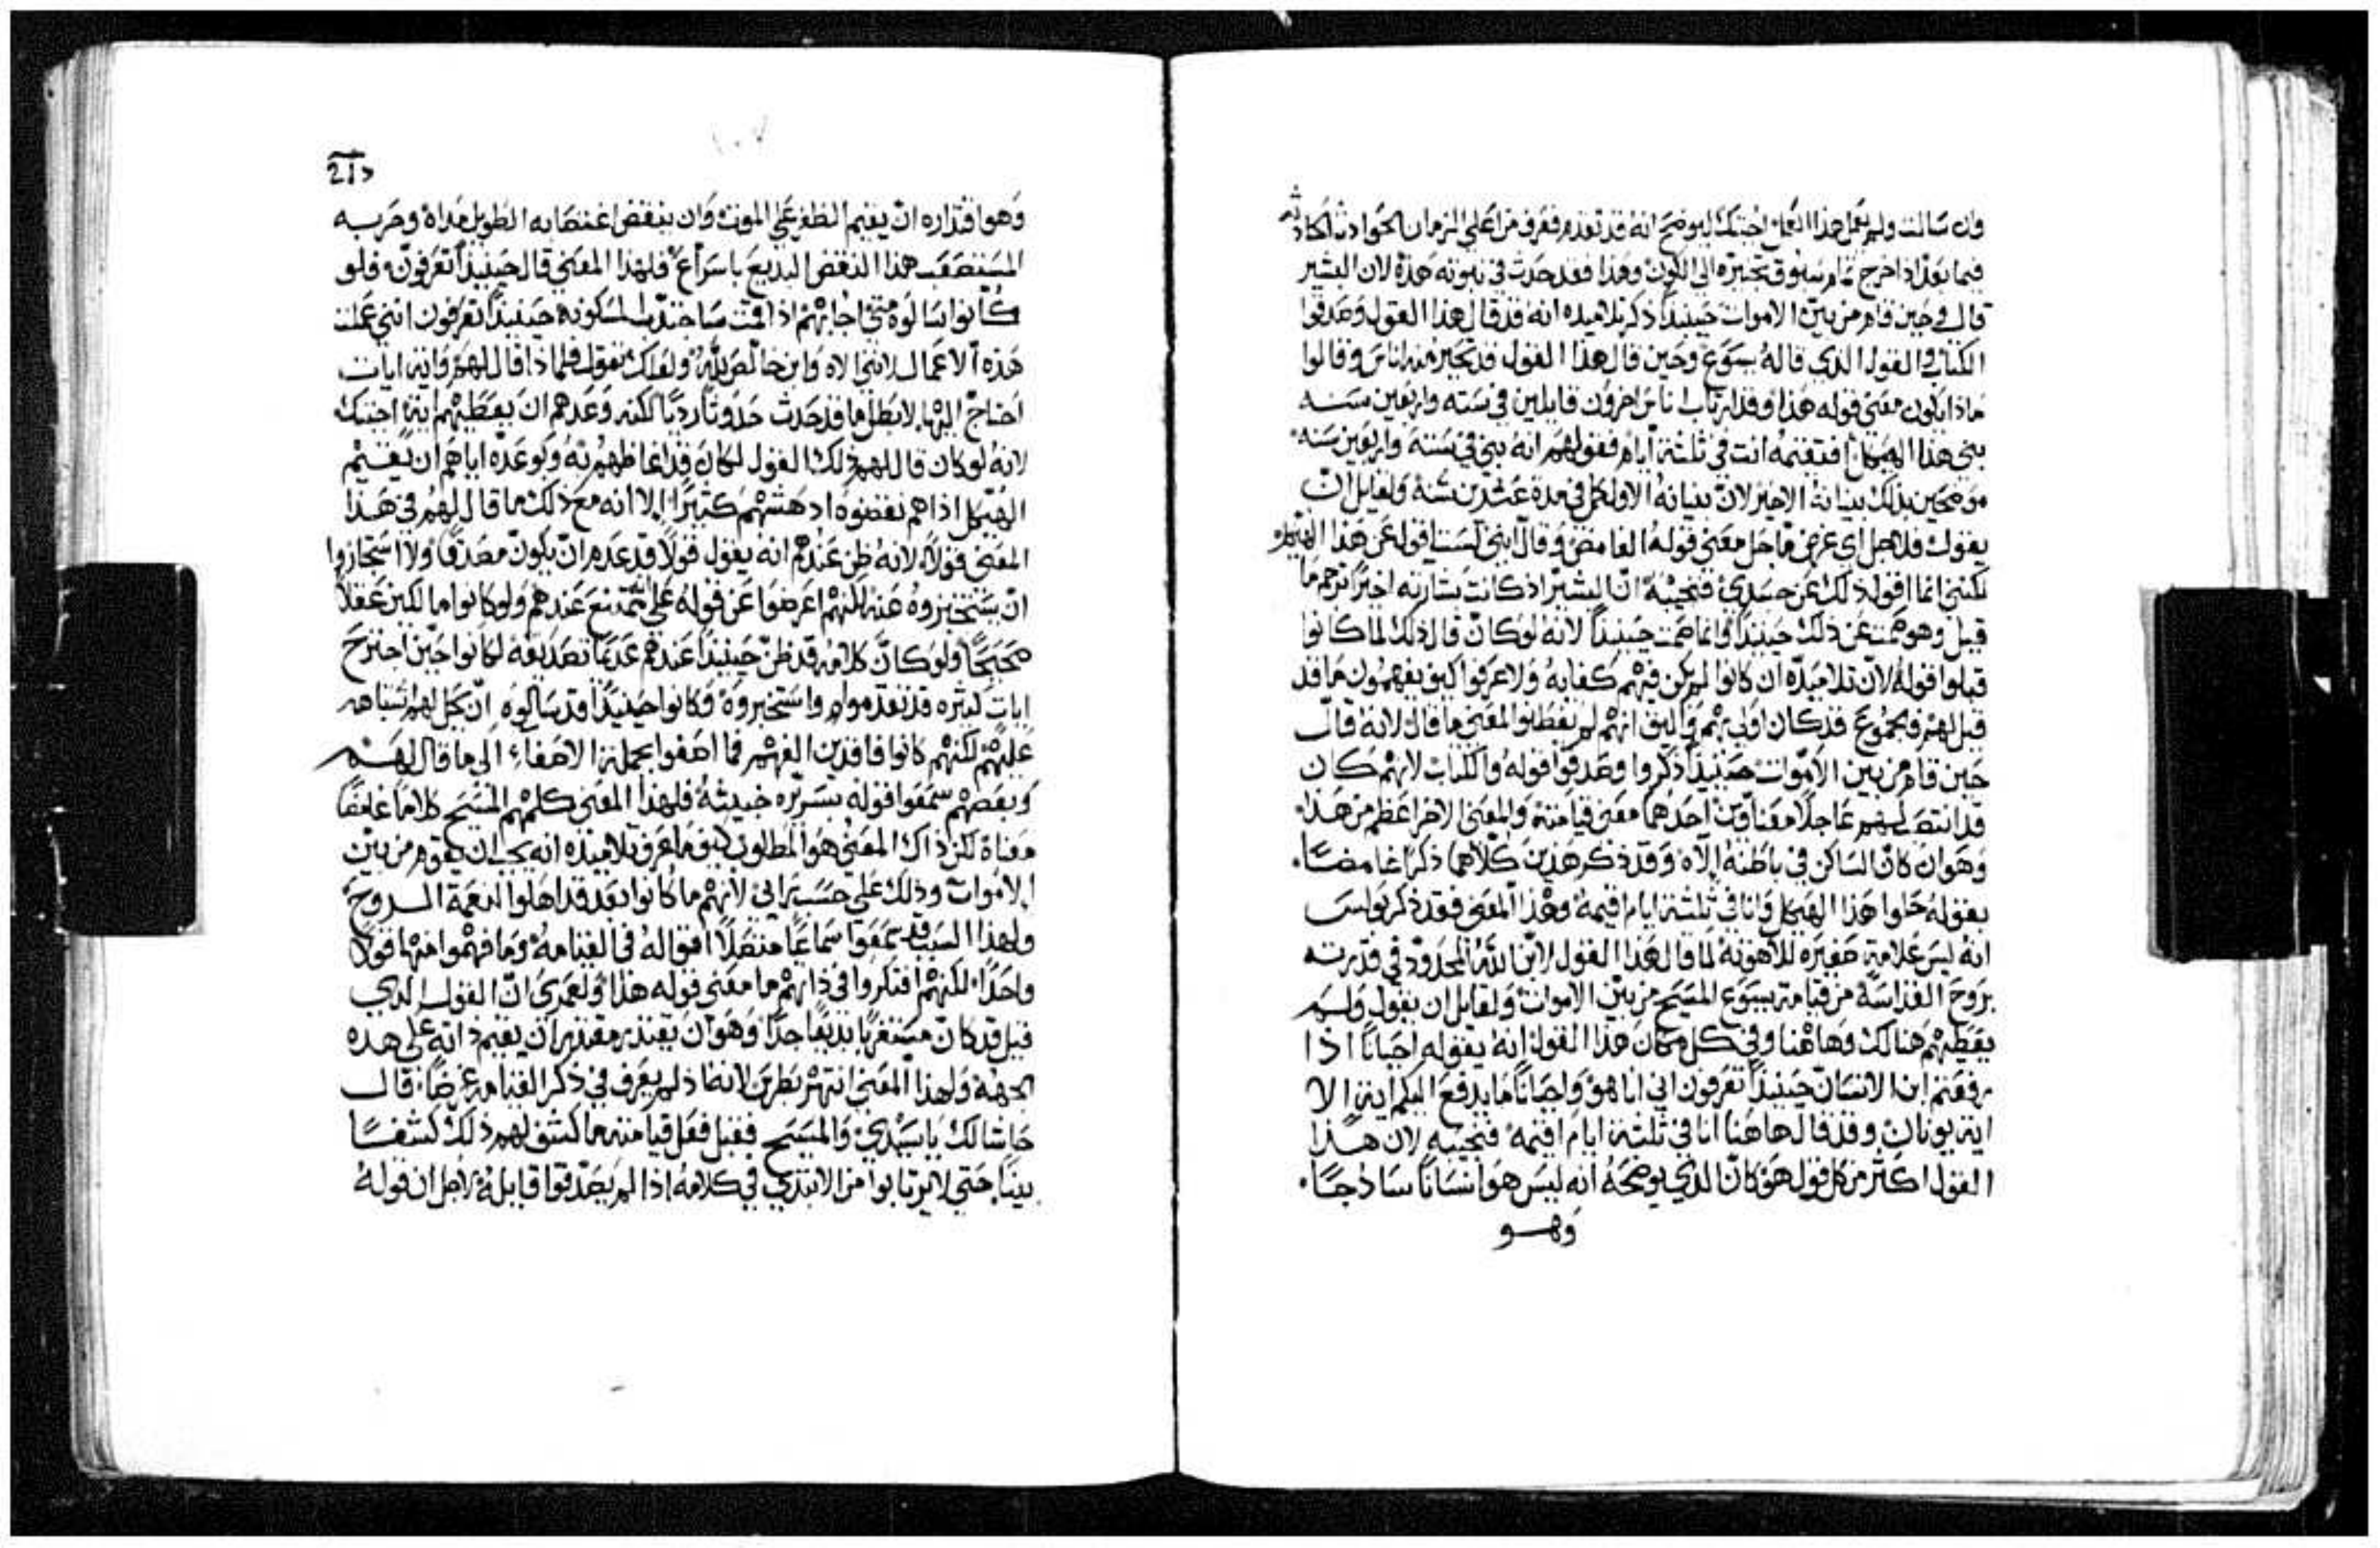 وان سالت ولم يعمل هذا العمل اجبتك ليوضح انه قد تقدم فعرف من اعلي الزمان الحوادث الحادثه
فيما بعد اذا خرج تمام سبوق تخبيره الي الكون وهذا فقد حدث في نبوته هذه لان البشير
قال وحين قام من بين الاموات حينيذا ذكر تلاميذه انه قد قال هذا القول وصدقوا
الكتاب والقول الدي قاله يسوع وحين قال هذا القول قد تحير منه اناس وقالوا
ماذا يكون معني قوله هذا وقد ارتاب اناس اخرون قايلين في سته واربعين سنه
بني هذا الهيكل افتقيمه انت في ثلثة ايام فقولهم انه بني في سته واربعين سنه
موضحين بذلك بنيانه الاخير لان بنيانه الاول كمل في مدة عشرين سنه ولقايل ان
يقول فلاجل اي غرض ما حل معني قوله الغامض وقال انني لست اقول عن هذا الهيكل
لكنني انما اقول ذلك عن جسدي فنجيبه ان البشير اذ كانت بشارته اخيرا ترجم ما
قيل وهو صمت عن ذلك حينيذا وانما صمت حينيذا لانه لو كان قال ذلك لما كانوا
قبلوا قوله لان تلاميذه ان كانوا لم يكن فيهم كفايه ولا عرفوا كيف يفهمون ما قد
قيل لهم فجموع قد كان اولي بهم واليق انهم لم يفطنوا لمعني ما قال لانه قال
حين قام من بين الاموات حينيذا ذكروا وصدقوا قوله والكتاب لانهم كان
قد انتصب لهم عاجلا معناوين احدهما معني قيامته والمعني الاخر اعظم من هذا
وهو ان كان الساكن في باطنه الاه وقد ذكر هذين كلاهما ذكرا غامضا.
بقوله حلوا هذا الهيكل وانا في ثلثة ايام اقيمه وهذا المعني فقد ذكر بولس
انه ليس علامة صغيره للاهوته لما قال هذا القول لابن الله المحدود في قدرته
بروح القداسة من قيامة يسوع المسيح من بين الاموات ولقايل ان يقول ولم
يعطيهم هنالك وهاهنا وفي كل مكان هذا القول انه يقوله احيانا اذا
رفعتم ابن الانسان حينيذا تعرفون اني انا هو واحيانا ما يدفع اليكم اية الا
اية يونان وقد قال هاهنا انا في ثلثة ايام اقيمه فنجيبه لان هذا
القول اكثر من كل قول هو كان الدي يوضحه انه ليس هو انسانا ساذجا.
وهو
وهو اقتداره ان يقيم الظفر علي الموت وان ينقض اغتصابه الطويل مداه وحربه
المستصعب هذا النقض البديع باسراع فلهذا المعني قال حينيذا تعرفون فلو
كانوا سالوه متي اجابهم اذا اقمت ساجتذب المسكونه حينيذا تعرفون انني عملت
هذه الاعمال لانني الاه وابن خالص لله ولعلك تقول فلماذا قال لهم واية ايات
احتاج اليها لابطل ما قد حدث حدوثا رديا لكنه وعدهم ان يعطيهم اية اجبتك
لانه لو كان قال لهم ذلك القول لكان قد اغاظهم به وبوعده اياهم ان يقيم
الهيكل اذا هم نقضوه ادهشهم كثيرا الا انه مع ذلك ما قال لهم في هذا
المعني قولا لانه ظن عندهم انه يقول قولا قد عدم ان يكون مصدقا ولا استجازوا
ان يستخبروه عنه لكنهم اعرضوا عن قوله علي ممتنع عندهم ولو كانوا مالكين عقلا
صحيحا ولو كان كلامه قد ظن حينيذا عندهم عديما تصديقه لكانوا حين اجترح
ايات كثيره قد تقدموا واستخبروه وكانوا حينيذا قد سالوه ان يحل لهم اشتباههم
عليهم لكنهم كانوا فاقدين الفهم فما اصغوا بجملة الاصغاء الي ما قال لهم
وبعضهم سمعوا قوله بسريره خبيثة فلهذا المعني كلمهم المسيح كلاما غامضا
معناه لكن ذاك المعني هو المطلوب كيف ما عرف تلاميذه انه يجب ان يقوم من بين
الاموات وذلك علي حسب رايي لانهم ما كانوا بعد قد اهلوا لنعمة الروح
ولهذا السبب قد سمعوا سماعا متصلا اقواله في القيامه وما فهموا منها قولا
واحدا لكنهم افتكروا في ذاتهم ما معني قوله هذا ولعمري ان القول الدي
قيل قد كان مستغربا بديعا جدا وهو ان يقتدر مقتدر ان يقيم ذاته علي هده
الجهة ولهذا المعني انتهر بطرس لانه اذ لم يعرف في ذكر القيامه غرضا قال
حاشا لك يا سيدي والمسيح فقبل فعل قيامته ما كشف لهم ذلك كشفا
بينا حتي لا يرتابوا من الابتدي في كلامه اذا لم يصدقوا قابله لاجل ان قوله